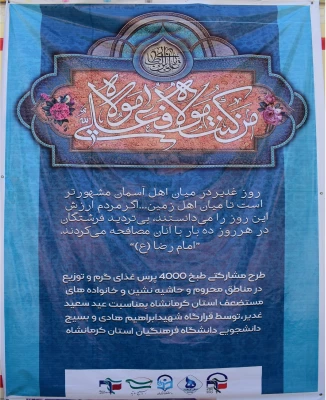 من کنت مولاه فعلی مولاه
روز غدیر در میان اهل آسمان مشهورتر
است تا میان اهل زمین...اگر مردم ارزش
این روز را می‌دانستند، بی‌تردید فرشتگان
در هر روز ده بار با آنان مصافحه می‌کردند.
"امام رضا (ع)"
طرح مشارکتی طبخ 4000 پرس غذای گرم و توزیع
در مناطق محروم و حاشیه نشین و خانواده های
مستضعف استان کرمانشاه بمناسبت عید سعید
غدیر، توسط قرارگاه شهید ابراهیم هادی و بسیج
دانشجویی دانشگاه فرهنگیان استان کرمانشاه